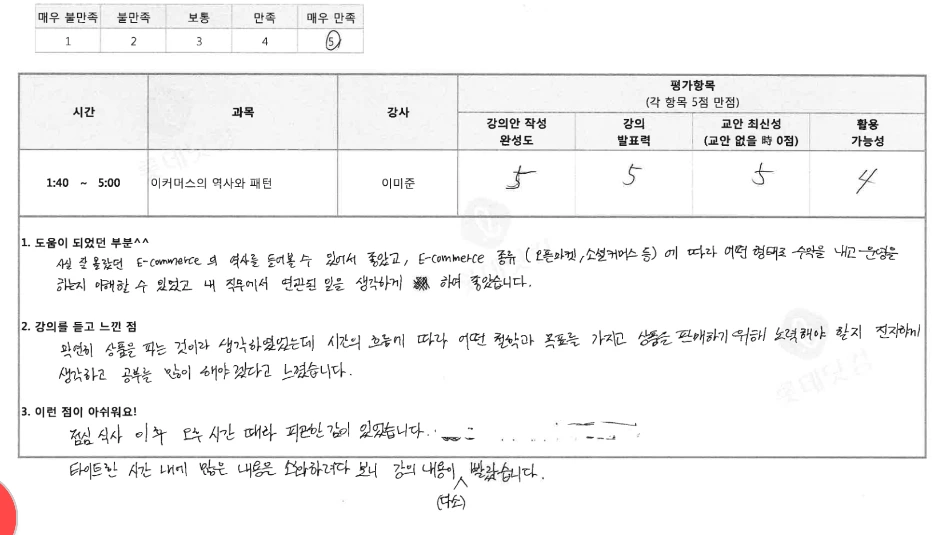 매우 불만족 불만족 보통 만족 매우 만족
1 2 3 4 5
시간 과목 강사 평가항목
(각 항목 5점 만점)
강의안 작성 완성도 강의 발표력 교안 최신성 (교안 없을 時 0점) 활용 가능성
1:40 ~ 5:00 이커머스의 역사와 패턴 이미준 5 5 5 4
1. 도움이 되었던 부분^^
사실 잘 몰랐던 E-commerce 의 역사를 들어볼 수 있어서 좋았고, E-commerce 종류 (오픈마켓, 소셜커머스 등) 에 따라 어떤 형태로 수익을 내고 운영을
하는지 이해할 수 있었고 내 직무에서 연관된 일을 생각하게 하여 좋았습니다.
2. 강의를 듣고 느낀 점
막연히 상품을 파는 것이라 생각하였었는데 시간의 흐름에 따라 어떤 철학과 목표를 가지고 상품을 판매하기 위해 노력해야 할지 진지하게
생각하고 공부를 많이 해야겠다고 느꼈습니다.
3. 이런 점이 아쉬워요!
점심 식사 이후 오후 시간 때라 피곤한 감이 있었습니다.
타이트한 시간 내에 많은 내용을 소화하려다 보니 강의 내용이 빨랐습니다.
(다소)